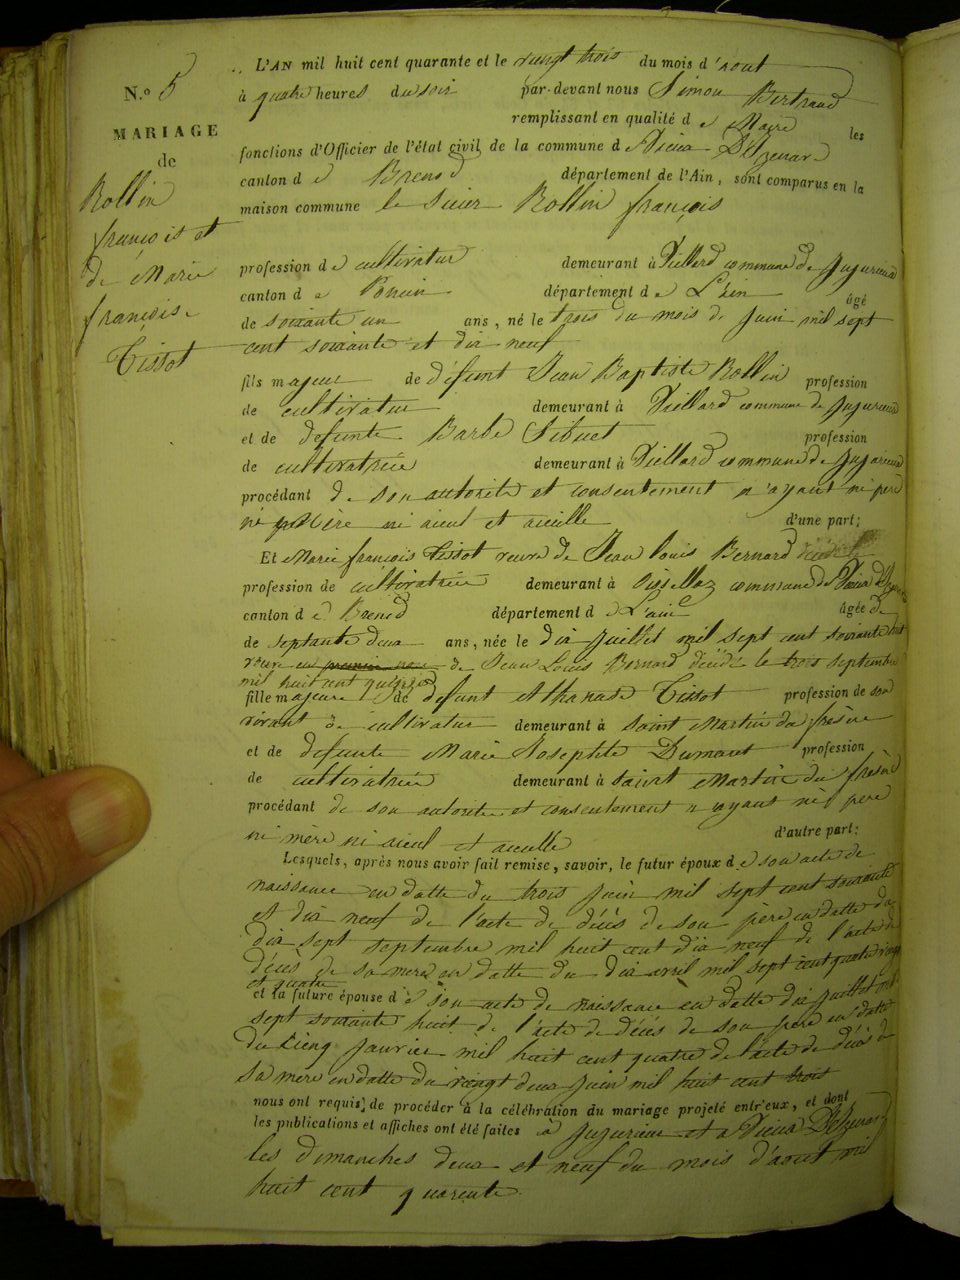 N.o 5
MARIAGE
de
Rollin
françois et
de Marie
françoise
Tissot
L'AN mil huit cent quarante et le vingt trois du mois d'aout
à quatre heures du soir par-devant nous Simon Bertrand
remplissant en qualité de Maire les
fonctions d'Officier de l'état civil de la commune de Vieux D'Izenave
canton de Brenod département de l'Ain, sont comparus en la
maison commune le sieur Rollin françois
profession de cultivateur demeurant à Viellard commune de Jujurieux
canton de Poncin département de L'ain âgé
de soixante un ans, né le trois du mois de Juin mil sept
cent soixante et dix neuf
fils majeur de défunt Jean Baptiste Rollin profession
de cultivateur demeurant à Viellard commune de Jujurieux
et de defunte Barbe Sibuet profession
de cultivatrice demeurant à Viellard commune de Jujurieux
procédant de son autorité et consentement n'ayant ni père
ni mère ni aieul et aieulle d'une part;
Et Marie françois Tissot veuve de Jean louis Bernard
profession de cultivatrice demeurant à Oissellaz commune de Vieux d'Izenave
canton de Brenod département de L'ain âgée de
de septante deux ans, née le dix Juillet mil sept cent soixante huit
veuve en de Jean Louis Bernard décédé le trois septembre
mil huit cent
fille majeure de defunt Athanase Tissot profession de son
vivant de cultivateur demeurant à saint Martin du fresne
et de defunte Marie Josephte Dumaret profession
de cultivatrice demeurant à saint Martin du fresne
procédant de son autorité et consentement n'ayant ni père
ni mère ni aieul et aieulle d'autre part:
Lesquels, après nous avoir fait remise, savoir, le futur époux de son acte de
naissance en datte du trois Juin mil sept cent soixante
et dix neuf de l'acte de décès de son père en datte du
dix sept septembre mil huit cent dix neuf de l'acte de
décès de sa mere en datte du dix avril mil sept cent quatre vingt
et quatre
et la future épouse de son acte de naissance en datte dix Juillet mil
sept soixante huit de l'acte de décès de son père en datte
du cinq Janvier mil huit cent quatre de l'acte de décès de
sa mere en datte du vingt deux Juin mil huit cent trois
nous ont requis de procéder à la célébration du mariage projeté entr'eux, et dont
les publications et affiches ont été faites à Jujurieux et a Vieux D'Izenave
les dimanches deux et neuf du mois d'aout mil
huit cent quarante